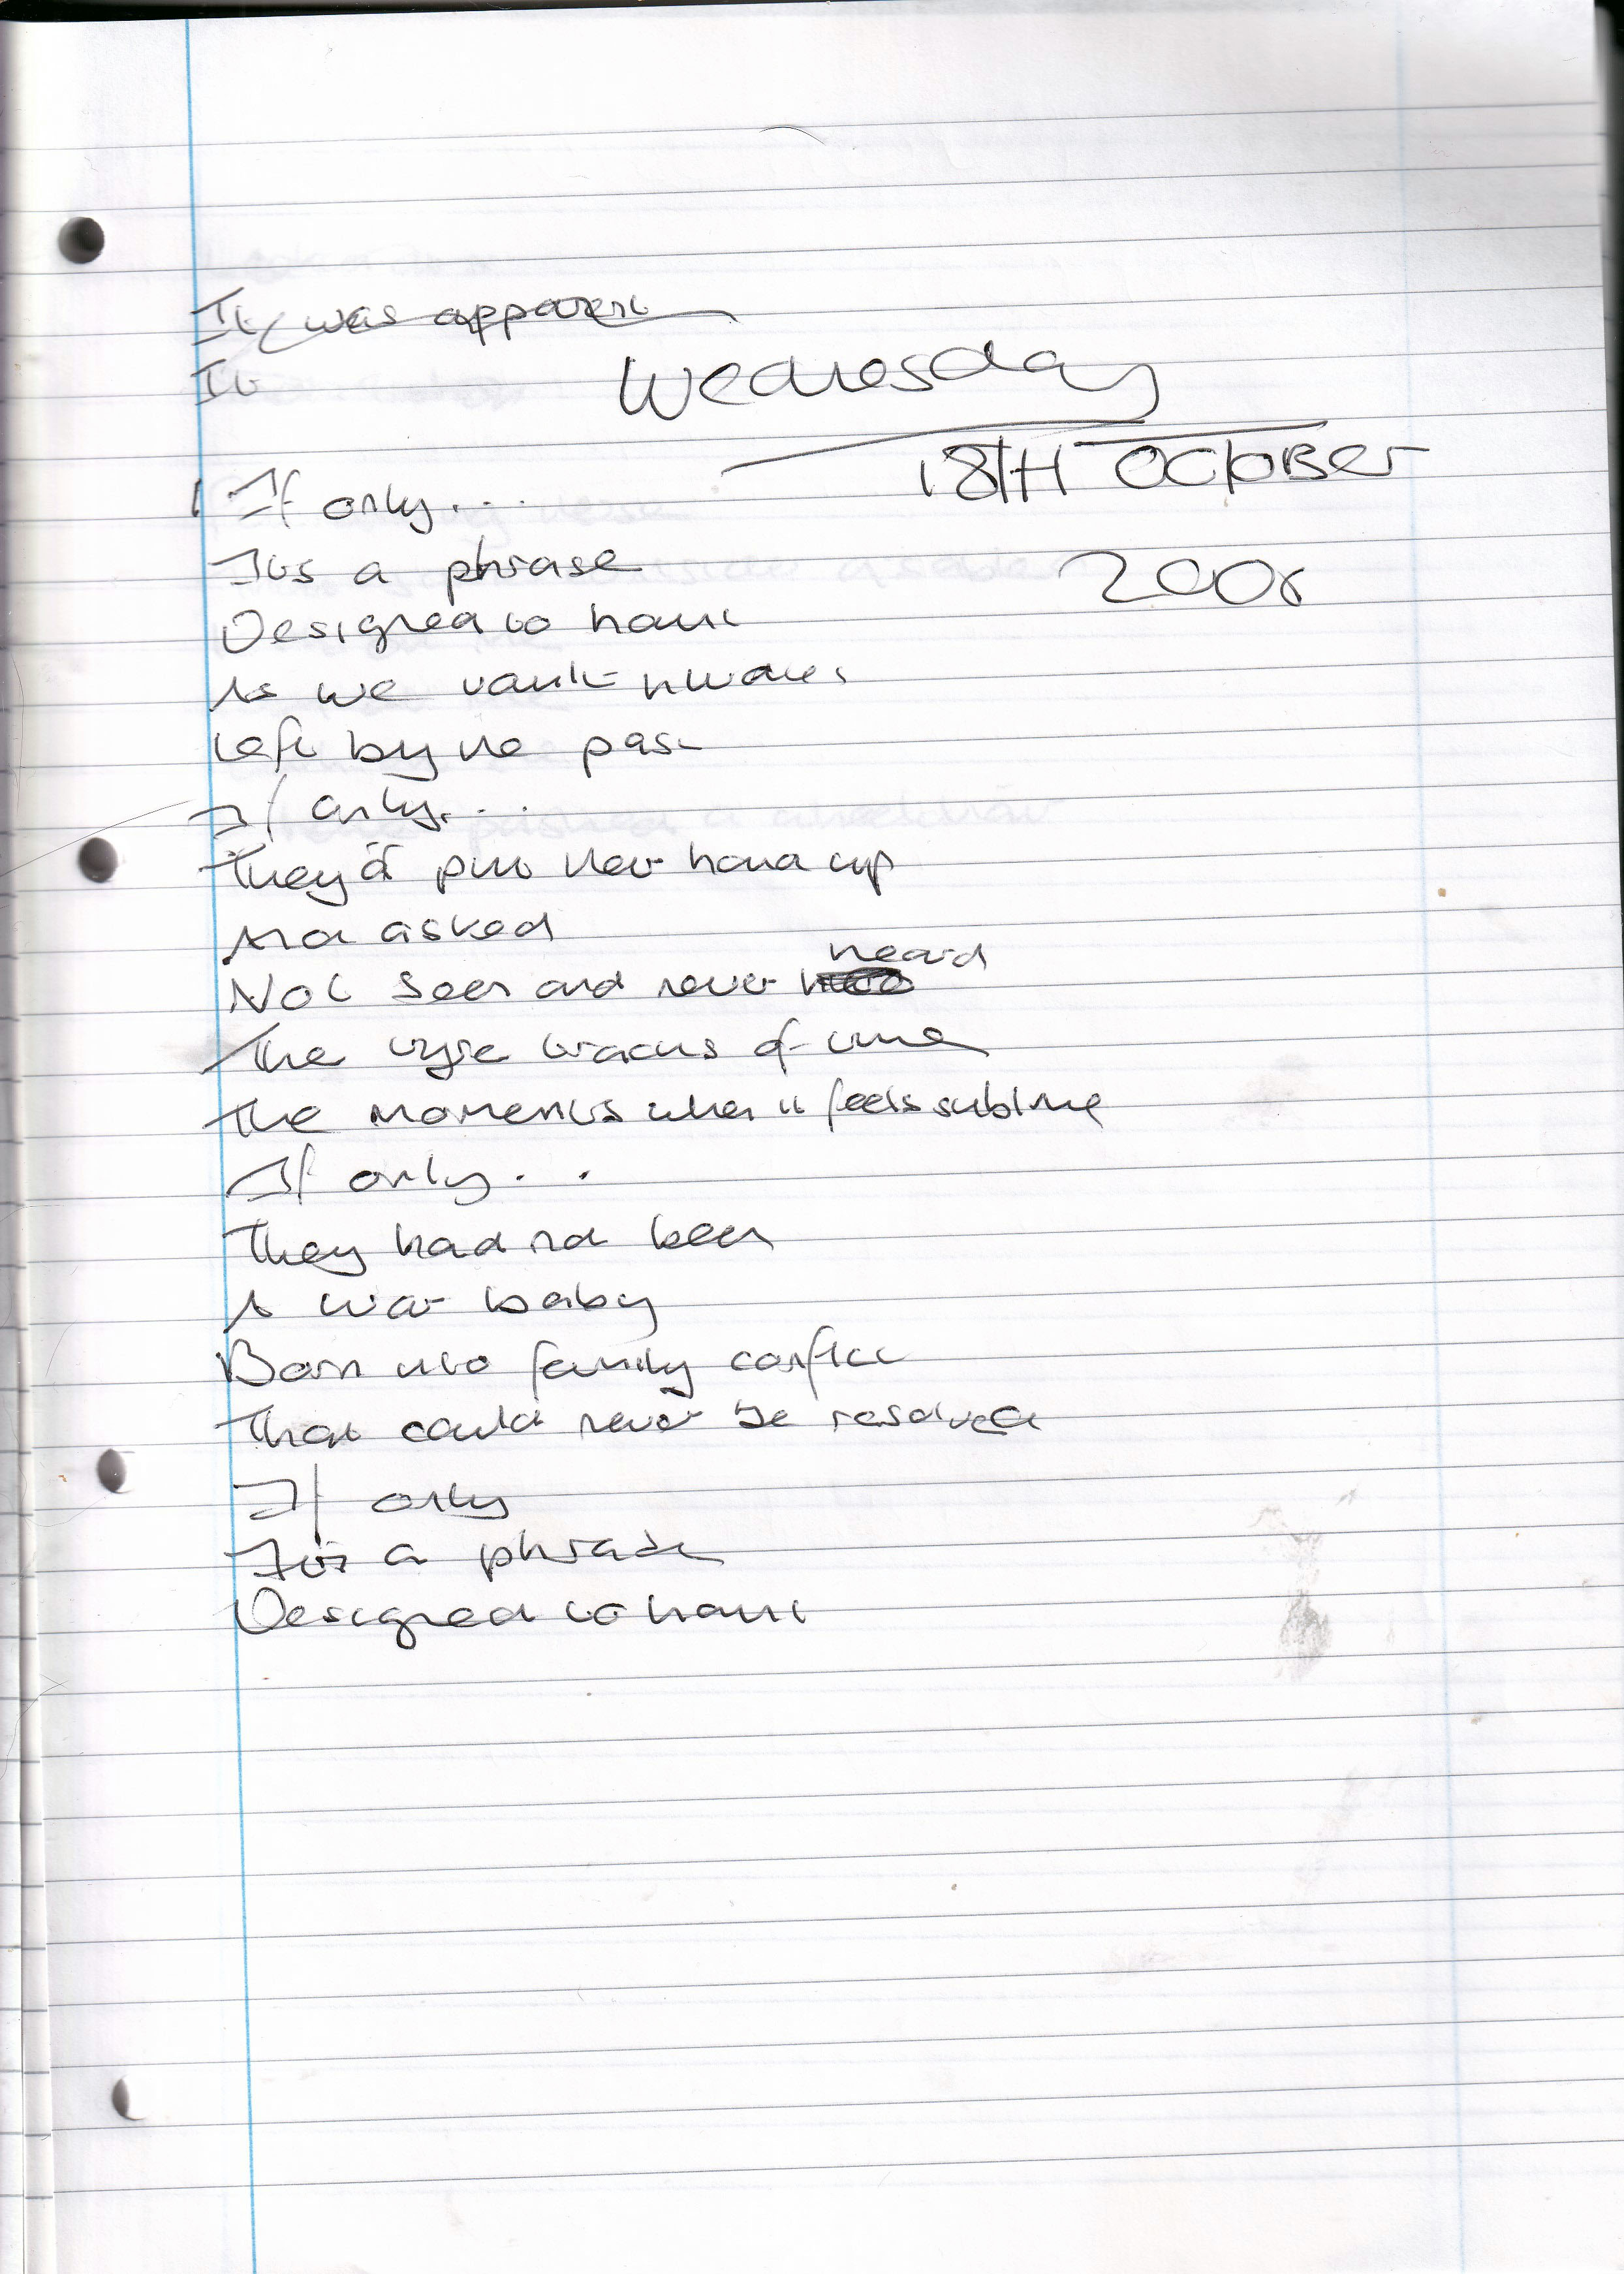 It was apparent
It
Wednesday
18TH OCTOBER
2006
If only....
Its a phrase
Designed to haunt
As we vault
Left by the past
If only...
They'd put their hand up
And asked
Not seen and never heard
The tyre tracks of time
The moments when it feels sublime
If only...
They had not been
A war baby
Born into family conflict
That could never be resolved
If only
Its a phrase
Designed to haunt